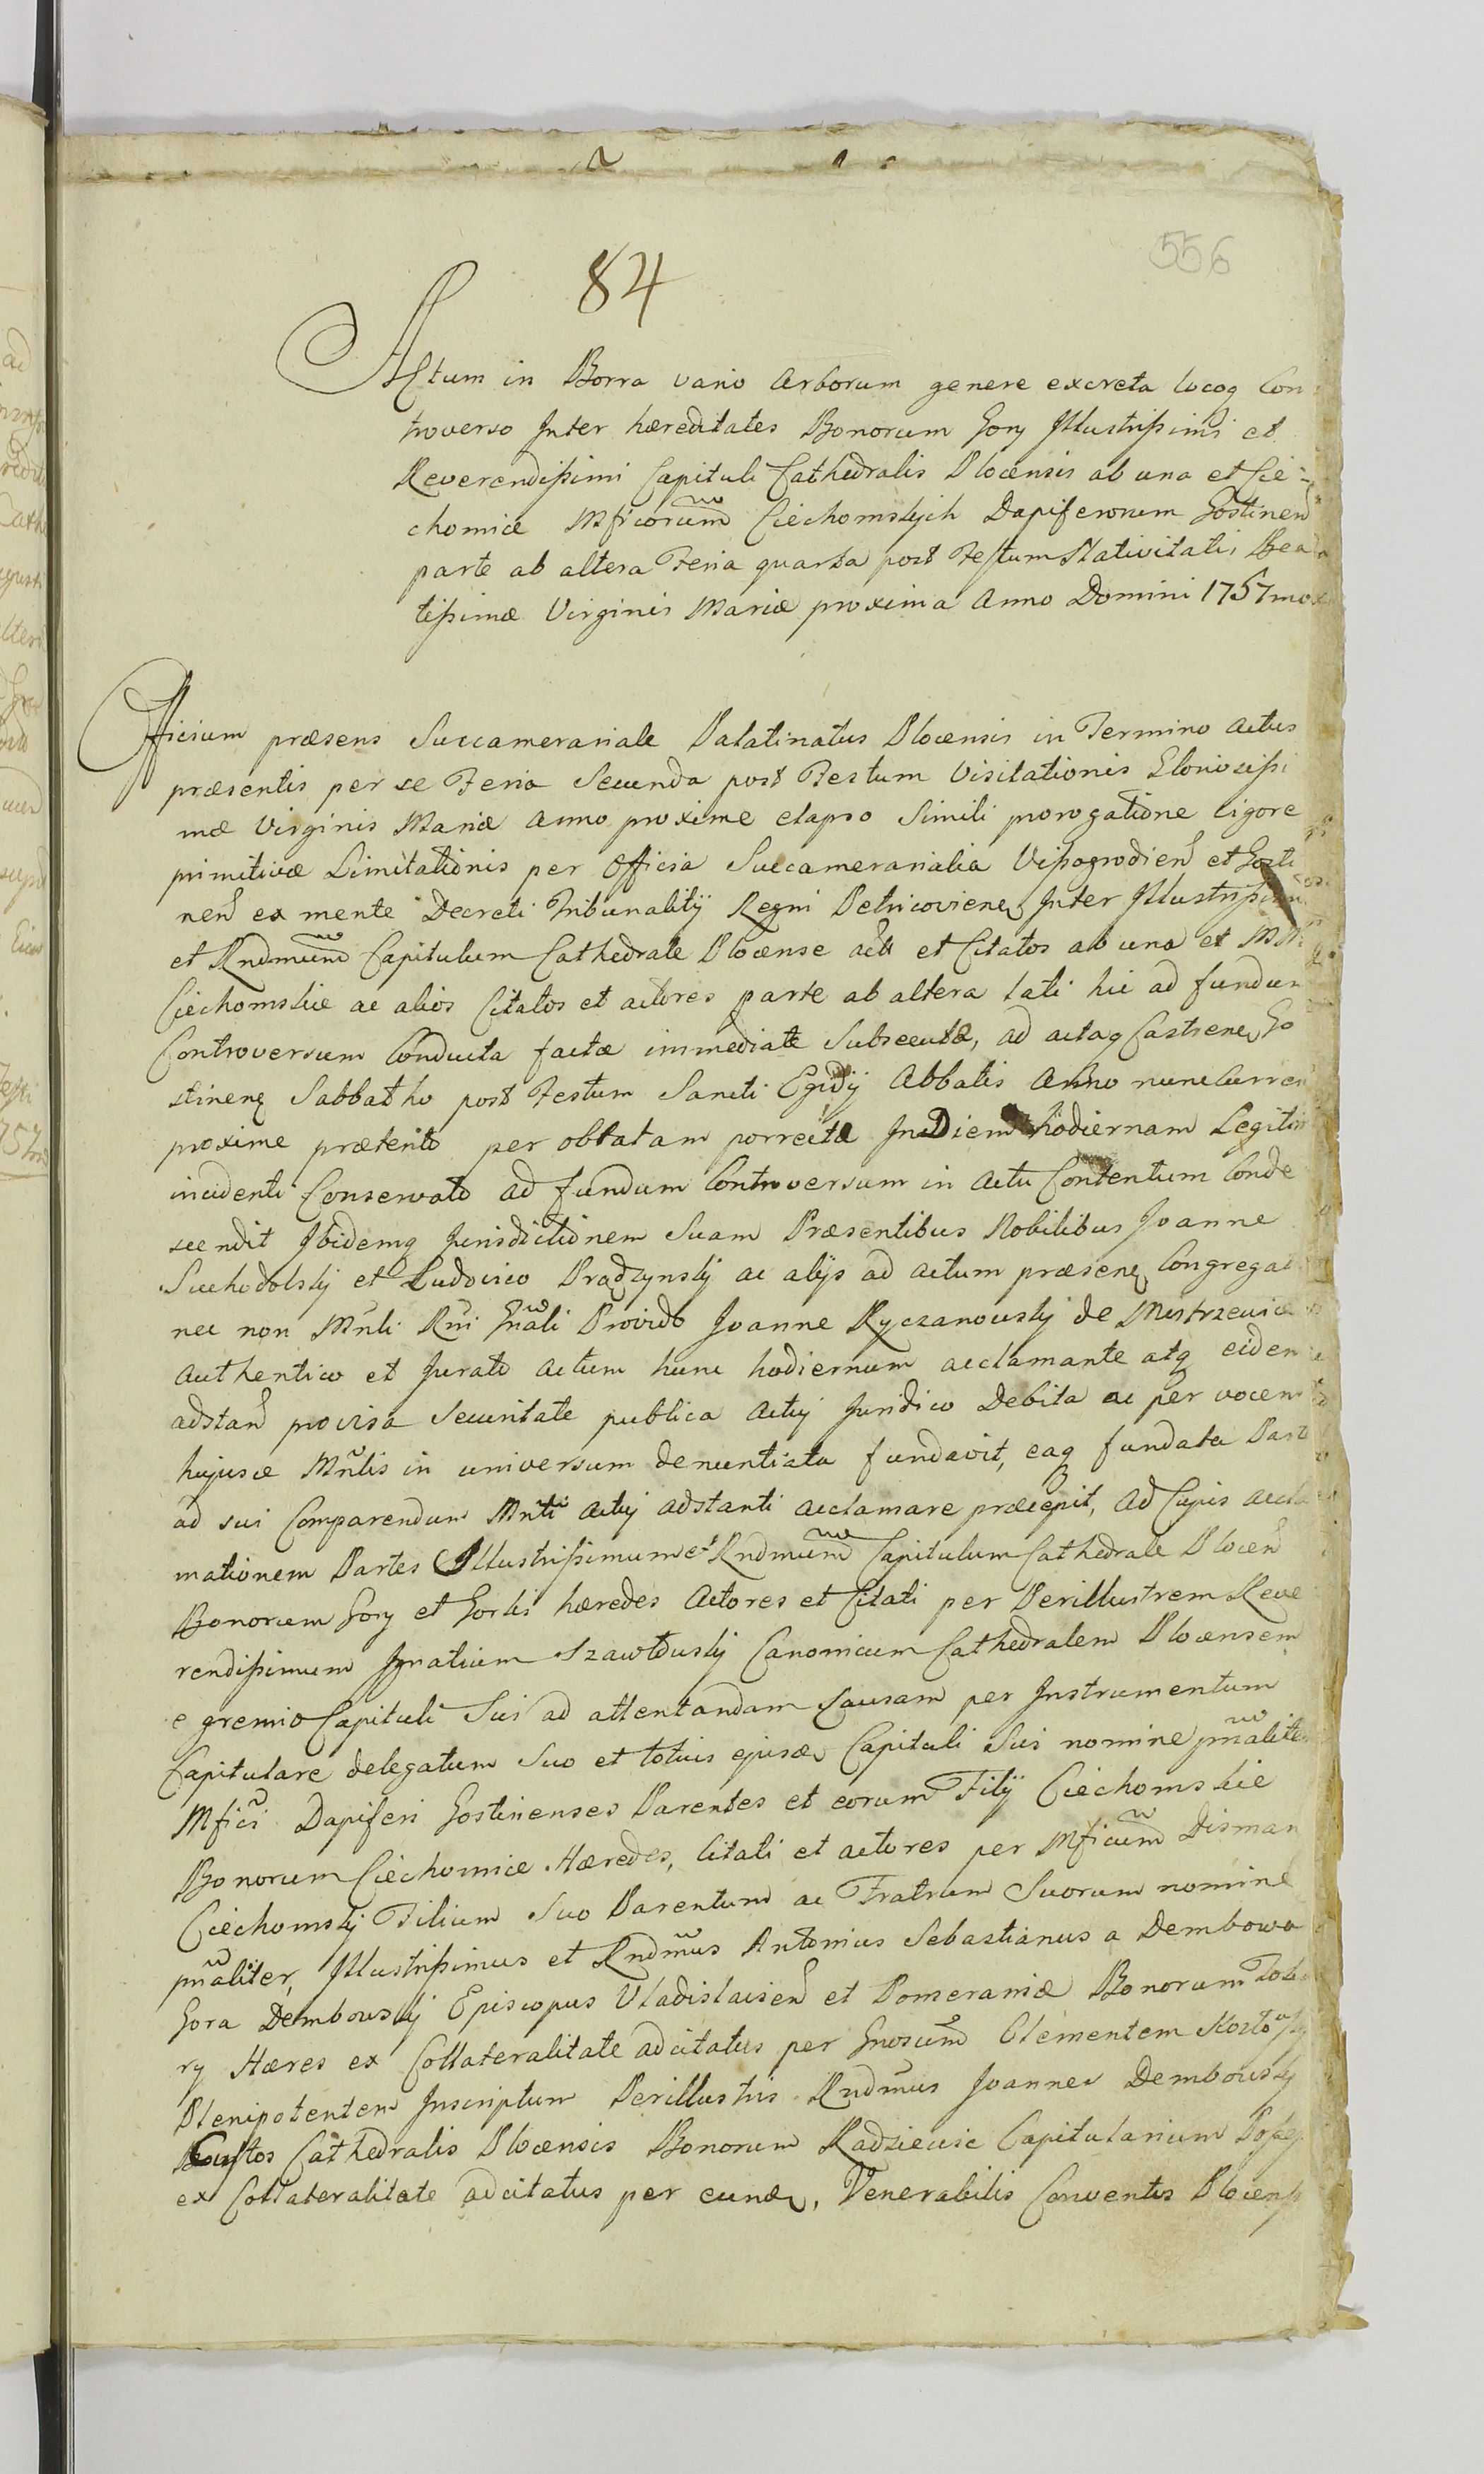 556
84
Actum in Borra vario Arborum genere excreta locoq Con
troverso Inter hæreditates Bonorum Gory Illustrissimi et
Reverendissimi Capituli Cathedralis Plocensis ab una et Cie-
chomice Mficorum Ciechomskych Dapiferorum Gostinen
parte ab altera Feria quarta post Festum Nativitatis Bea
tissimæ Virginis Mariæ proxima Anno Domini 1757mo
Officium præsens Succamerariale Palatinatus Plocensis in Termino Actus
præsentis per se Feria Secunda post Festum Visitationis Gloriosissi
mæ Virginis Mariæ Anno proxime elapso Simili prorogatione vigore
primitivæ Limitationis per Officia Succamerarialia Vissogrodien et Gosti
nen ex mente Decreti Tribunalitÿ Regni Petricovienes Inter Illustrissimum
et Rndmum Capitulum Cathedrale Plocense act et Citatos ab una et MM
Ciechomskie ac alios Citatos et actores parte ab altera lati hic ad fundum
Controversum Conducta factæ immediate Subsecutæ, ad actaq Castrenes Go
stinenes Sabbatho post Festum Sancti Egidÿ Abbatis Anno nunc Curren
proxime præterito per oblatam porrectæ In Diem hodiernam Legitim
incidenti Conservato ad fundum Controversum in Actu Contentum Conde
scendit Ibidemq Jurisdictionem Suam Præsentibus Nobilibus Joanne
Suchodolskÿ et Ludovico Prądzynskÿ ac alÿs ad actum præsenes Congregat
nec non Mnli Rni Gnali Provido Joanne Ryczanowskÿ de Mistrzewice
Authentico et Jurato actum hunc hodiernum acclamante atq eidem
adstan provisa Securitate publica Actuj Juridico Debita ac per vocem
hujusce Mnlis in universum denuntiata fundavit, eaq fundata Part
ad sui Comparendum Mnli Actuj adstanti acclamare præcepit, Ad Cujus accla
mationem Partes Illustrissimum et Rndmum Capitulum Cathedrale Plocen
Bonorum Gory et Gorki hæredes Actores et Citati per Perillustrem Reve
rendissimum Ignatium Szawłduskÿ Canonicum Cathedralem Plocensem
e gremio Capituli Sui ad attentandam Causam per Instrumentum
Capitulare delegatum Suo et totius ejusdem Capituli Sui nomine pnaliter
Mfici Dapiferi Gostinenses Parentes et eorum Filÿ Ciechomskie
Bonorum Ciechomice Hæredes, Citati et actores per Mficum Disman
Ciechomskÿ Filium Suo Parentum ac Fratrum Suorum nomine
pnaliter, Illustrissimus et Rndmus Antonius Sebastianus a Dembowa
Gora Dembowskÿ Episcopus Vladislaisen et Pomeraniæ Bonorum Tok
ry Hæres ex Collateralitate adcitatus per Gnosum Clementem
Plenipotentem Inscriptum Perillustris Rndmus Joannes Dembowskÿ
Custos Cathedralis Plocensis Bonorum Radziewie Capitularium
ex Collateralitate adcitatus per eundem, Venerabilis Conventus Plocens